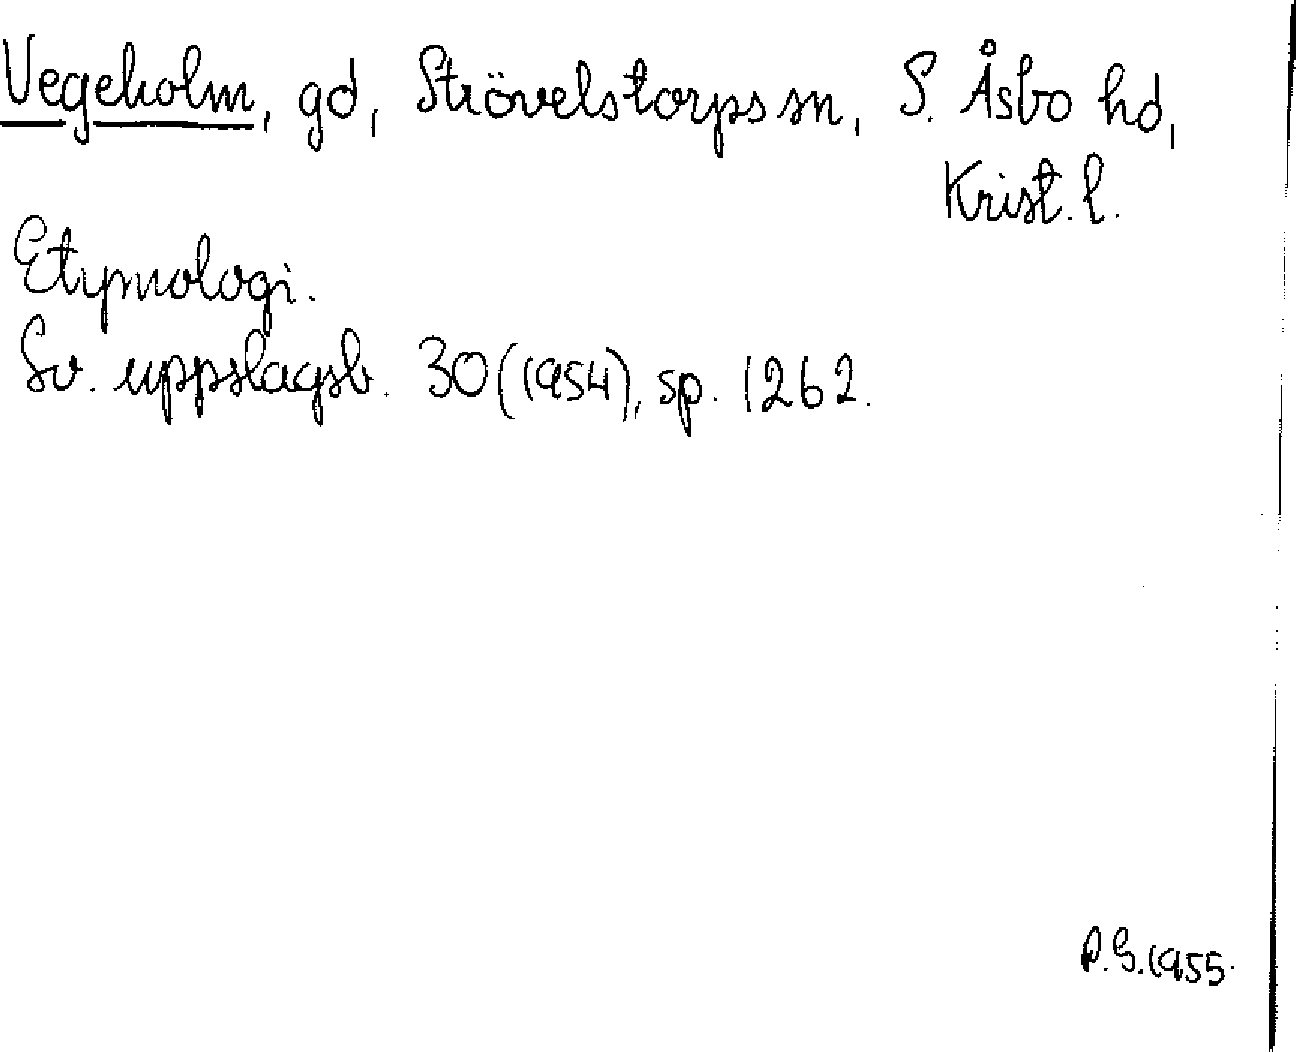 Vegeholm, gd, Strövelstorps sn, S. Åsbo hd,
Krist. l.
Etymologi.
Sv. uppslagsb. 30 (1954), sp. 1262.
P.G. 1955.